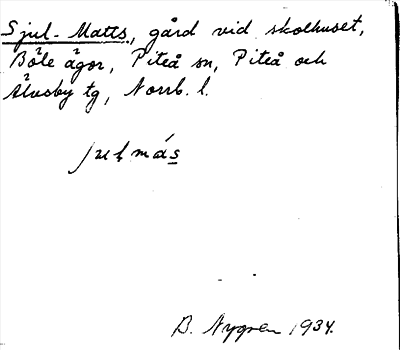 Sjul-Matts, gård vid skolhuset,
Böle ägor, Piteå sn, Piteå och
Älvsby tg, Norrb. l.
ʃuḷmás̲
B. Nygren 1934.